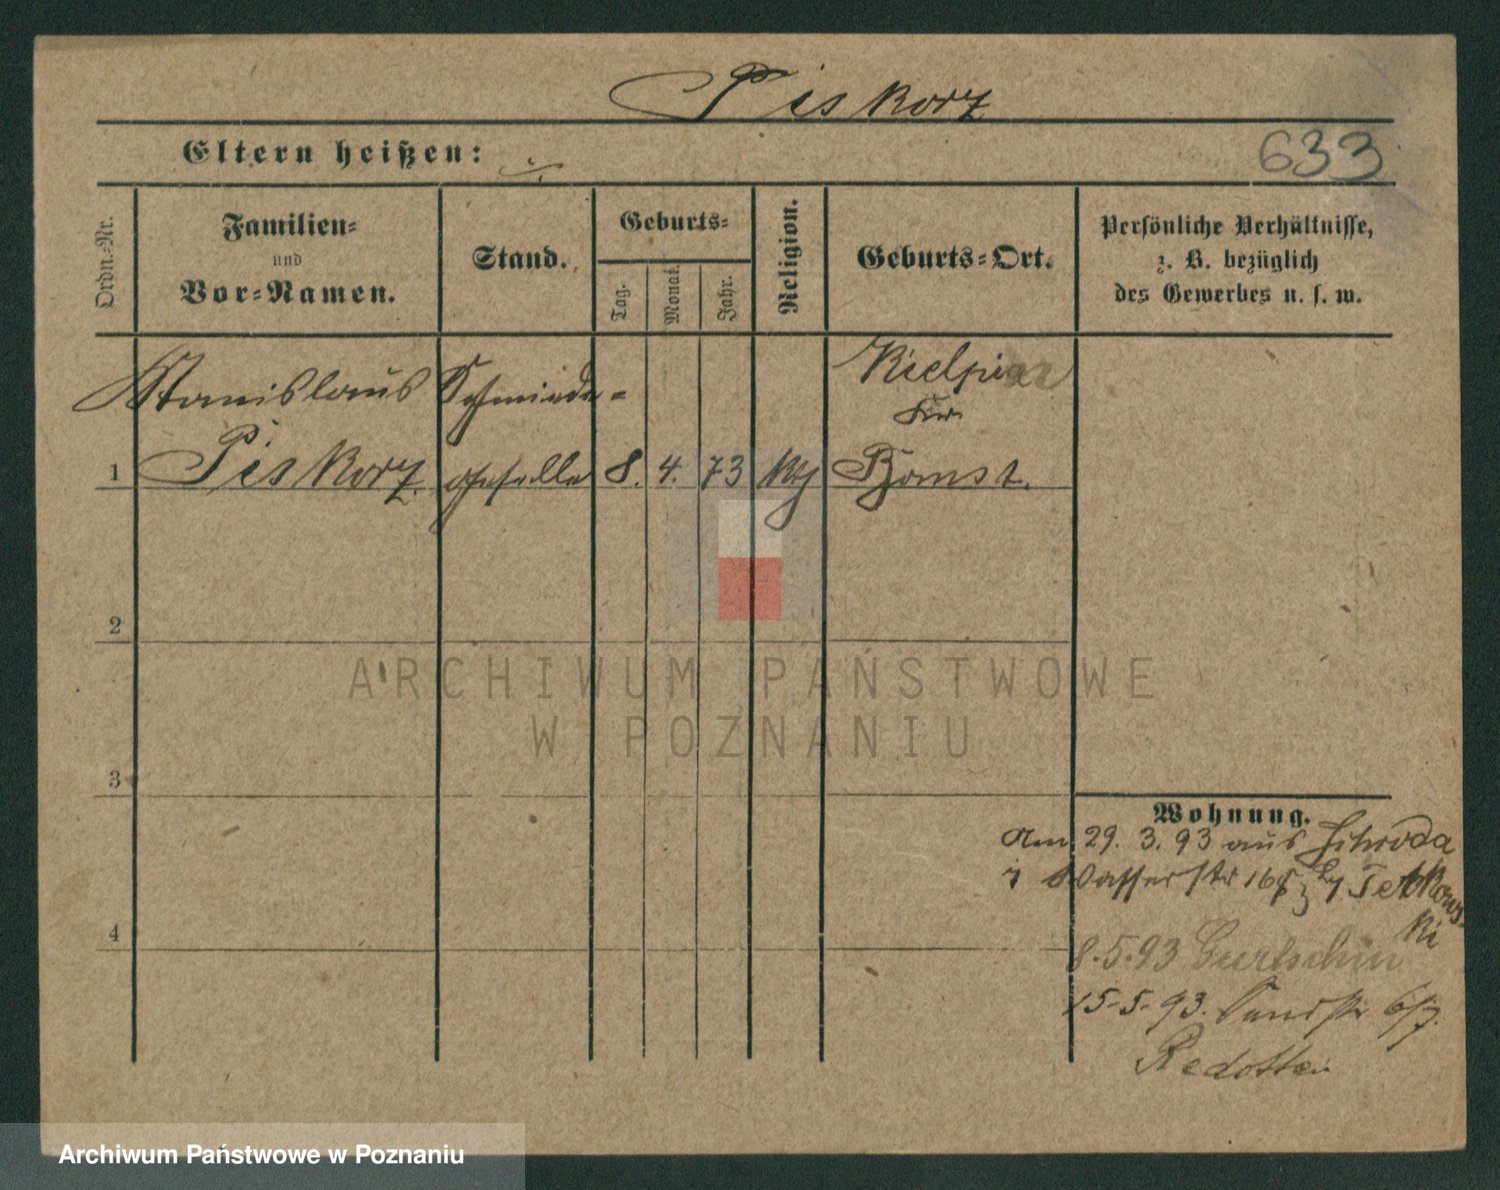 Piskorz
Eltern heißen: ./.
633
Ordn.-Nr.
Familien-
und
Vor-Namen.
Stand.
Geburts-
Tag.
Monat.
Jahr.
Religion.
Geburts-Ort.
Persönliche Verhältnisse,
z. B. bezüglich
des Gewerbes u. s. w.
Stanislaus
Piskorz
Schmiede-
geselle
8. 4. 73
kth
Kielpin
Kr.
Bomst.
1
2
3
4
ARCHIWUM PAŃSTWOWE
W POZNANIU
Wohnung.
Am 29. 3. 93 aus
Wasserstr 16
8.5.93 Gurtschin
15.5.93. Sandstr 6/7.
Archiwum Państwowe w Poznaniu